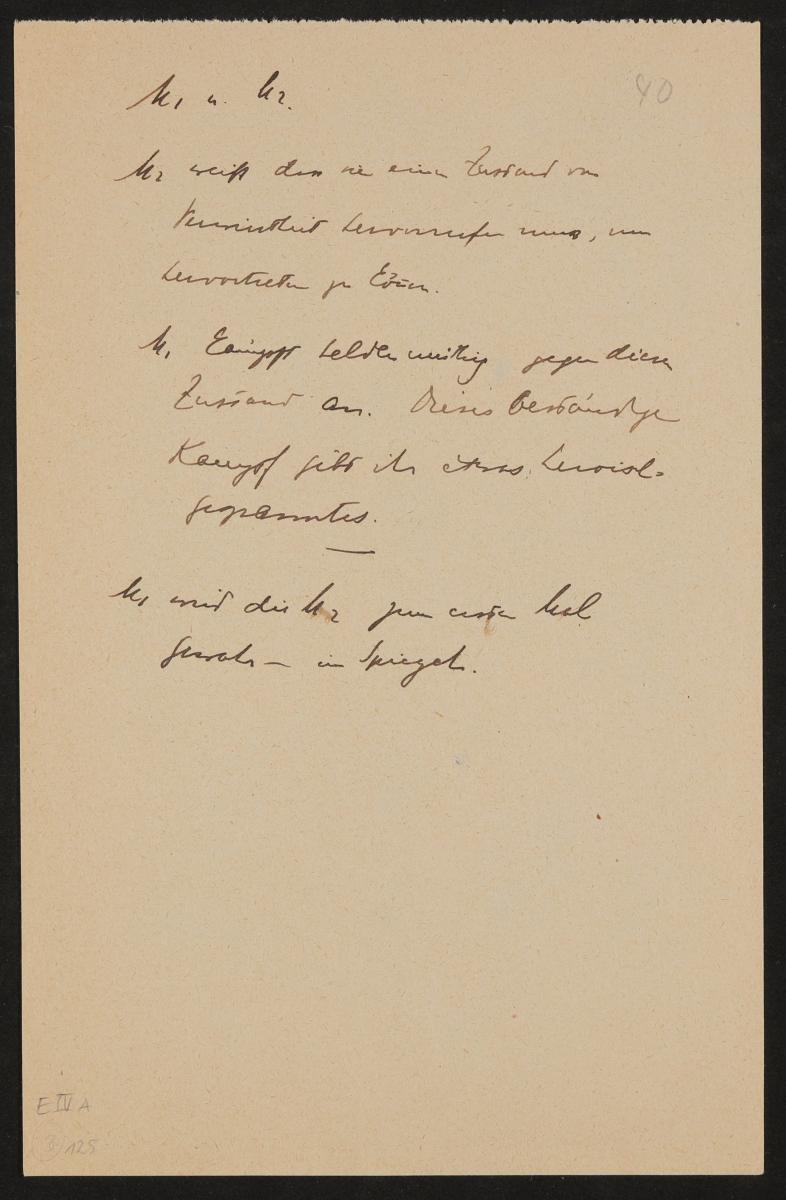 M1 u. M2.
40
M2 weiß dass sie einen Zustand von
Verwirrtheit hervorrufen muss, um
hervortreten zu können.
M1 kämpft heldenmüthig gegen diesen
Zustand an. Dieser beständige
Kampf gibt ihr etwas heroisch-
gespanntes.
M1 wird die M2 zum ersten Mal
gewahr – im Spiegel.
E IV A
125